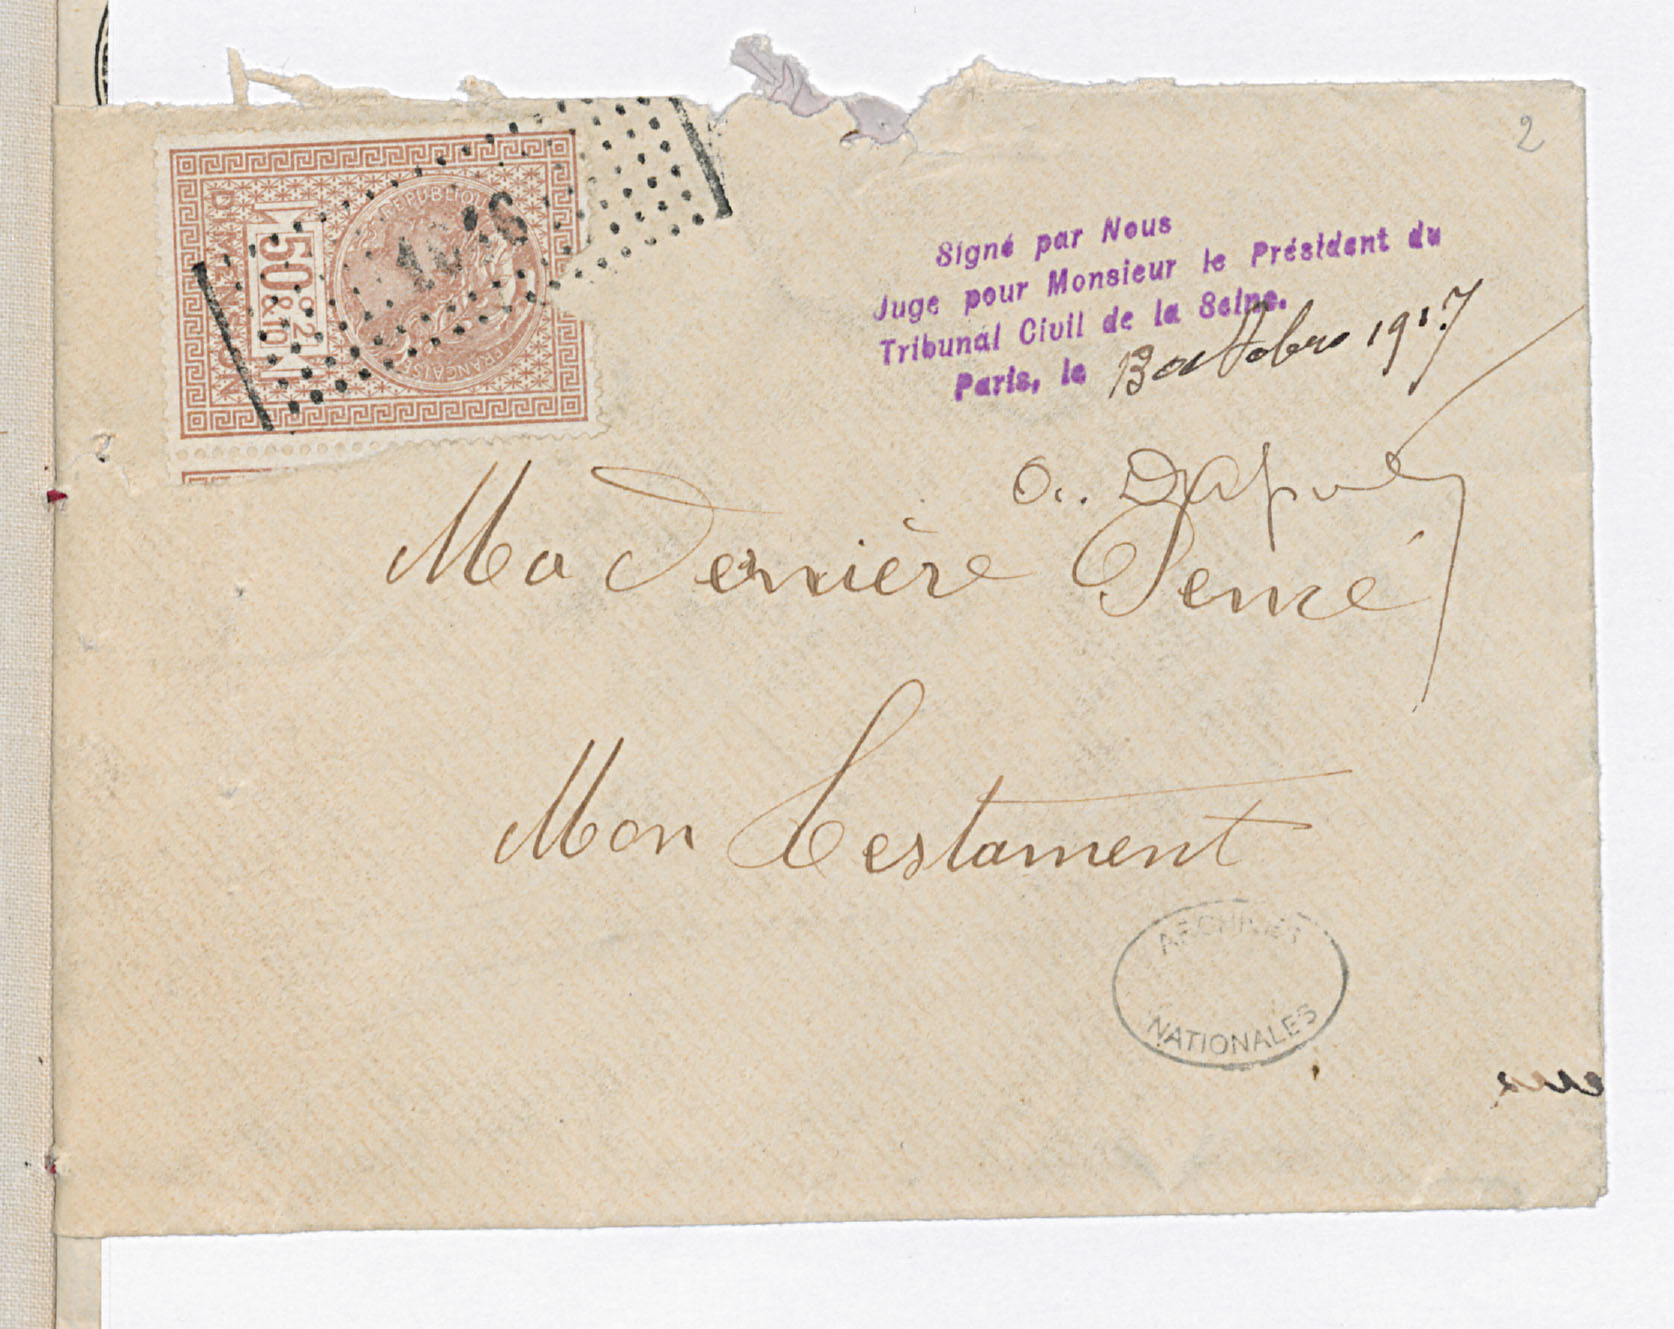 2
DIMENSION
50 c. 2/10
&
RÉPUBLIQUE
FRANÇAISE
Signé par Nous
Juge pour Monsieur le Président du
Tribunal Civil de la Seine.
Paris, le 13 octobre 1917
Ma Dernière Pensé
Mon Testament
ARCHIVES
NATIONALES